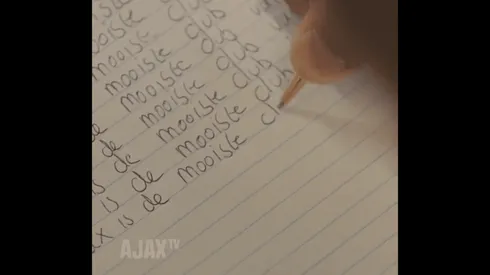 mooiste
mooiste club
mooiste club
de mooiste club
is de mooiste club
is de mooiste club
ax is de mooiste cl
AJAX TV